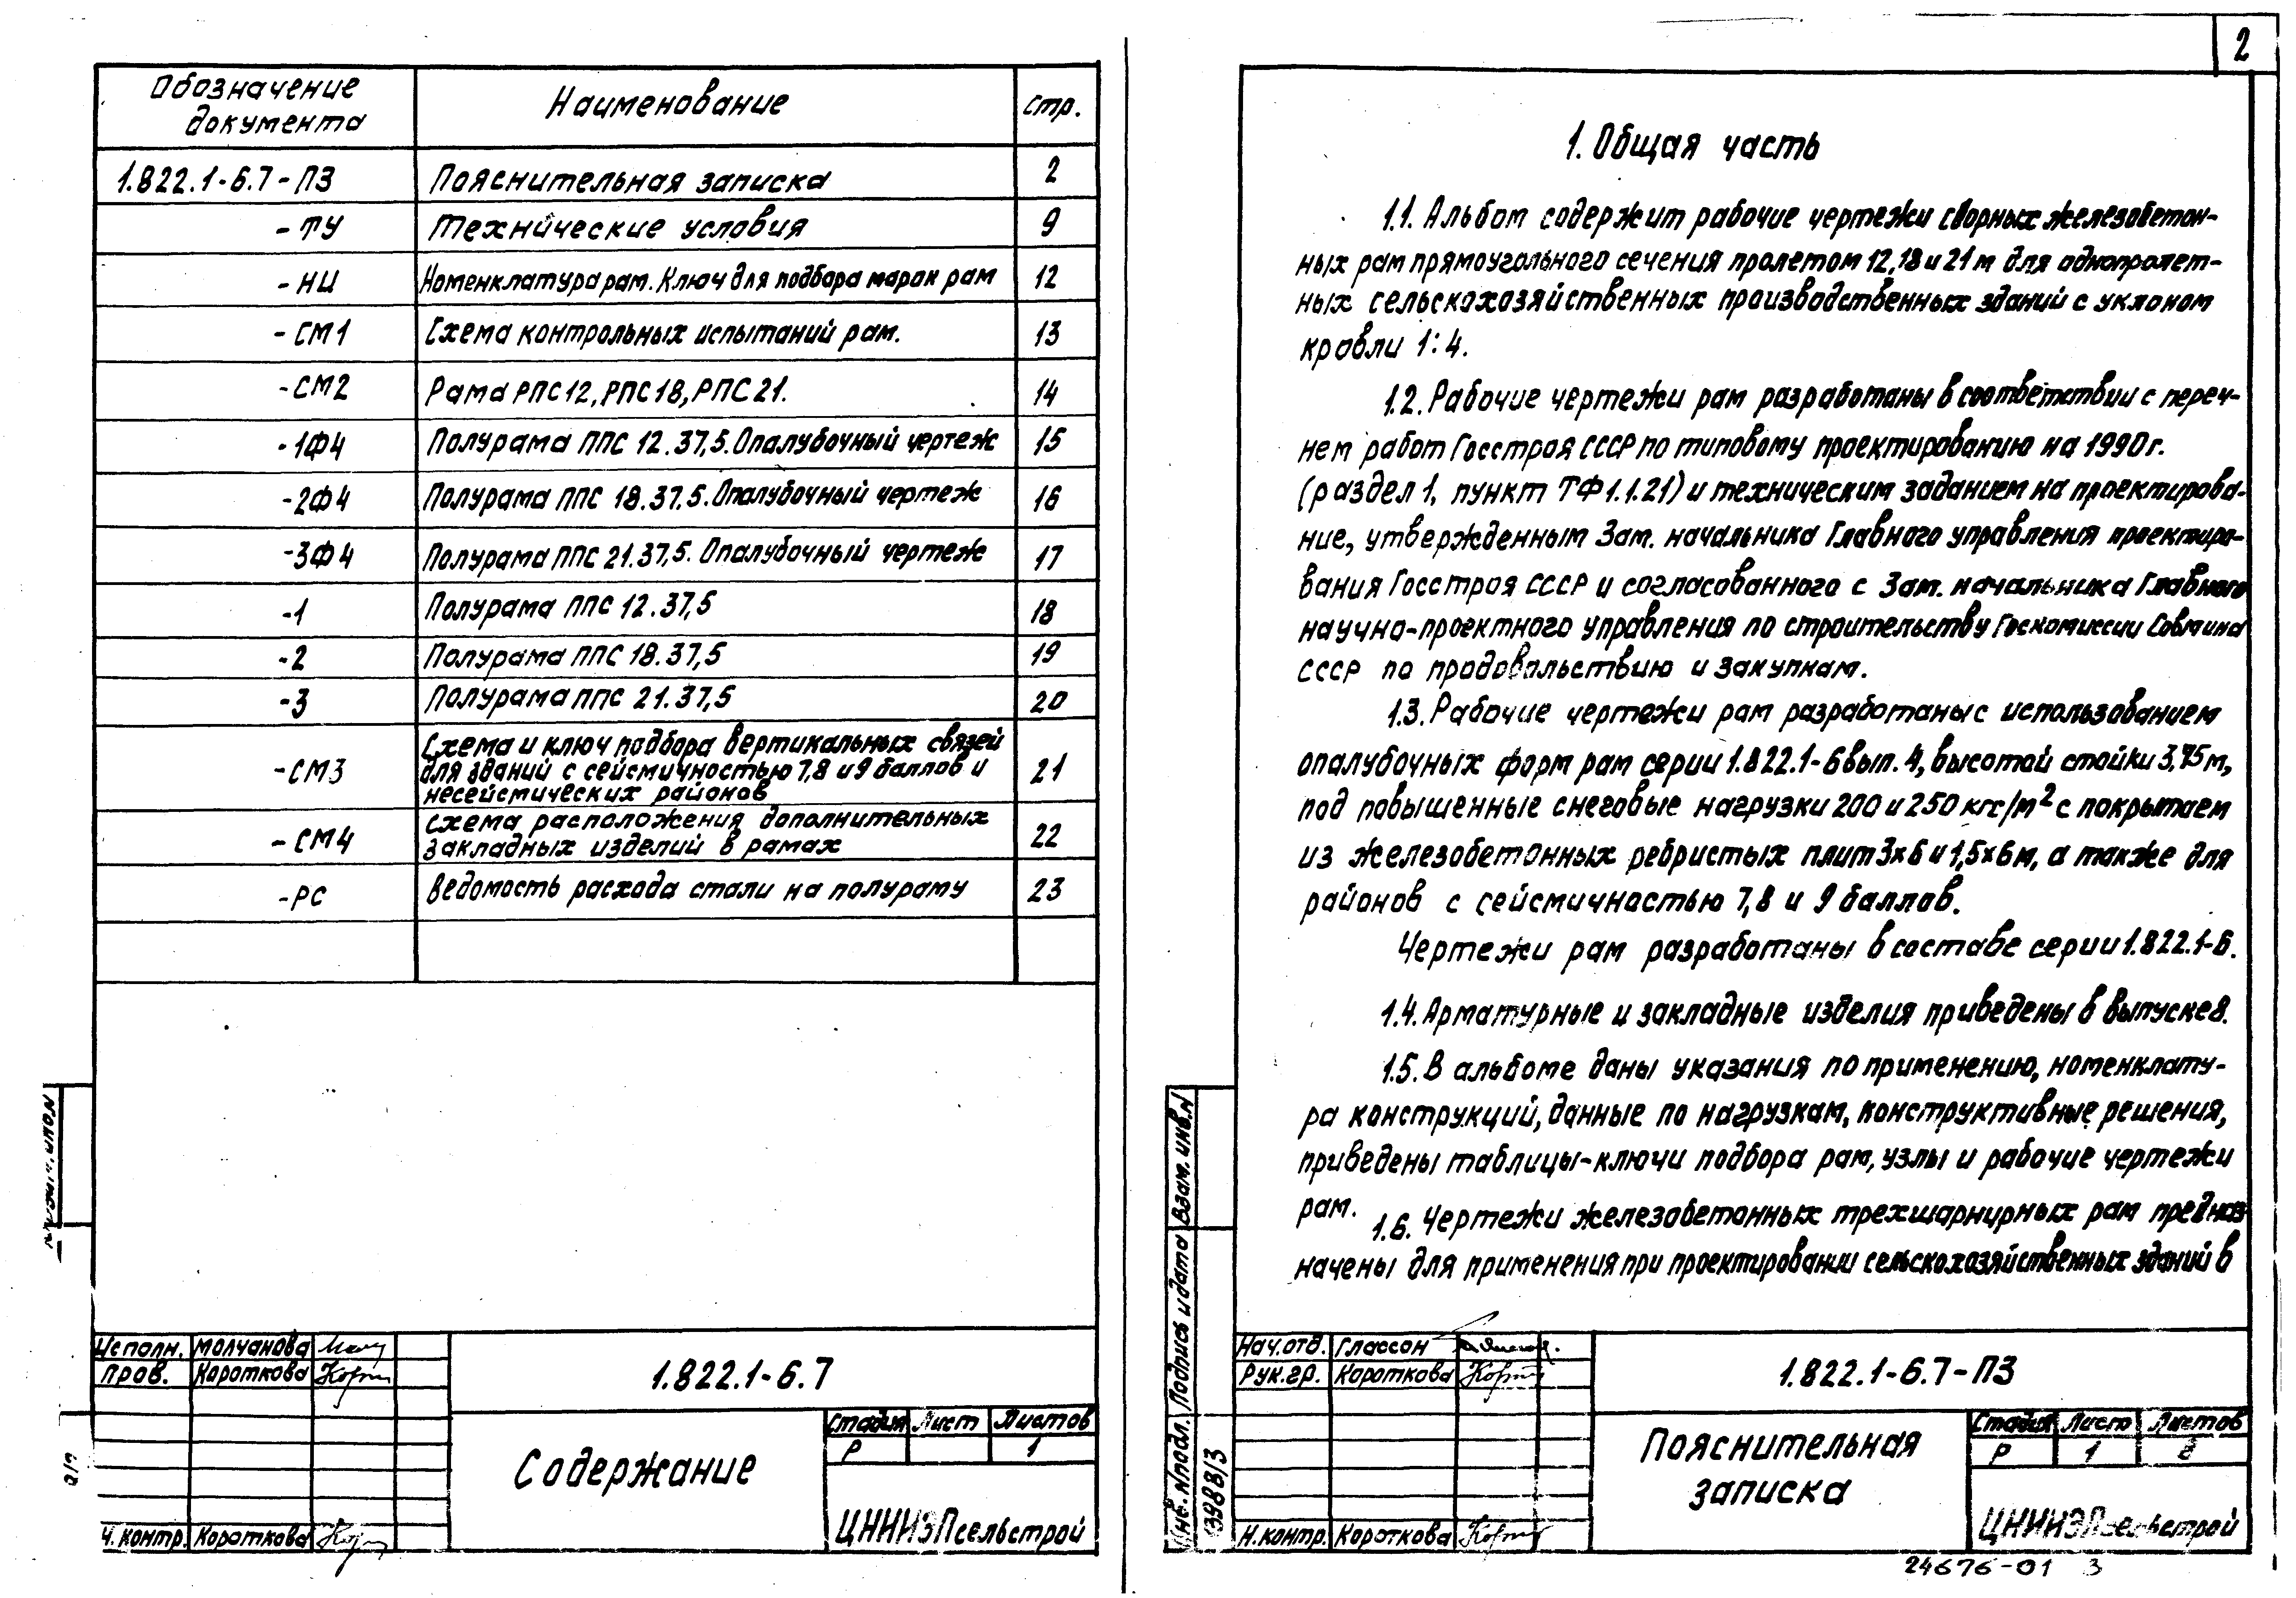 Обозначение документа | Наименование | стр.
1.822.1-6.7-ПЗ | Пояснительная записка | 2
-ТУ | Технические условия | 9
-НИ | Номенклатура рам. Ключ для подбора марок рам | 12
-СМ1 | Схема контрольных испытаний рам. | 13
-СМ2 | Рама РПС12, РПС18, РПС21. | 14
-1Ф4 | Полурама ППС 12.37,5. Опалубочный чертеж | 15
-2Ф4 | Полурама ППС 18.37,5. Опалубочный чертеж | 16
-3Ф4 | Полурама ППС 21.37,5. Опалубочный чертеж | 17
-1 | Полурама ППС 12.37,5 | 18
-2 | Полурама ППС 18.37,5 | 19
-3 | Полурама ППС 21.37,5 | 20
-СМ3 | Схема и ключ подбора вертикальных связей
для зданий с сейсмичностью 7,8 и 9 баллов и
несейсмических районов | 21
-СМ4 | Схема расположения дополнительных
закладных изделий в рамах | 22
-РС | Ведомость расхода стали на полураму | 23
Исполн. Молчанова
Пров. Короткова
Н. контр. Короткова
1.822.1-6.7
Содержание
Стадия Лист Листов
Р 1
ЦНИИЭПсельстрой
2
1. Общая часть
1.1. Альбом содержит рабочие чертежи сборных железобетон-
ных рам прямоугольного сечения пролетом 12, 18 и 21 м для однопролет-
ных сельскохозяйственных производственных зданий с уклоном
кровли 1:4.
1.2. Рабочие чертежи рам разработаны в соответствии с переч-
нем работ Госстроя СССР по типовому проектированию на 1990 г.
(раздел 1, пункт ТФ 1.1.21) и техническим заданием на проектирова-
ние, утвержденным Зам. начальника Главного управления проектиро-
вания Госстроя СССР и согласованного с Зам. начальника Главного
научно-проектного управления по строительству Госкомиссии Совмина
СССР по продовольствию и закупкам.
1.3. Рабочие чертежи рам разработаны с использованием
опалубочных форм рам серии 1.822.1-6 вып. 4, высотой стойки 3,75 м,
под повышенные снеговые нагрузки 200 и 250 кгс/м² с покрытием
из железобетонных ребристых плит 3×6 и 1,5×6 м, а также для
районов с сейсмичностью 7,8 и 9 баллов.
Чертежи рам разработаны в составе серии 1.822.1-6.
1.4. Арматурные и закладные изделия приведены в выпуске 8.
1.5. В альбоме даны указания по применению, номенклату-
ра конструкций, данные по нагрузкам, конструктивные решения,
приведены таблицы-ключи подбора рам, узлы и рабочие чертежи
рам.
1.6. Чертежи железобетонных трехшарнирных рам предназ-
начены для применения при проектировании сельскохозяйственных зданий в
Взам. инв. N
Подпись и дата
Инв. N подл.
Нач. отд. Глассон
Рук. гр. Короткова
Н. контр. Короткова
1.822.1-6.7-ПЗ
Пояснительная
записка
Стадия Лист Листов
Р 1 8
ЦНИИЭПсельстрой
24676-01 3